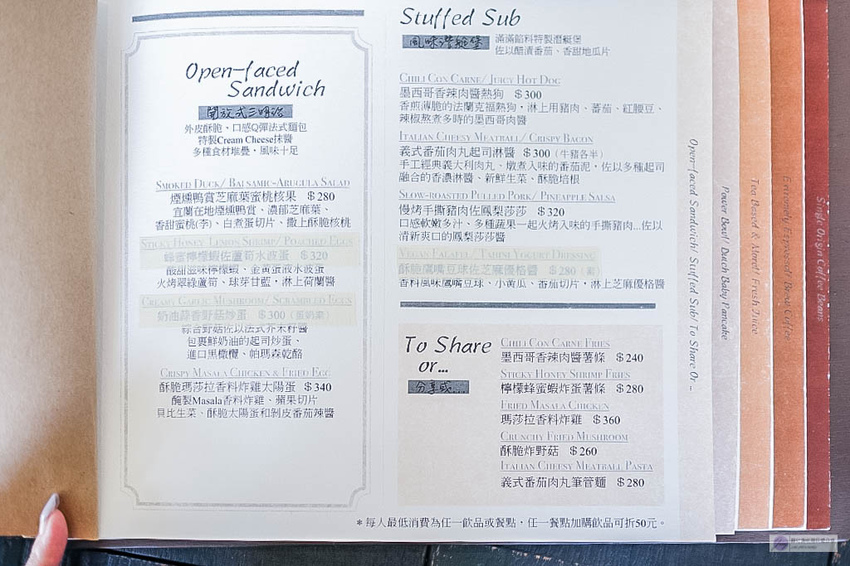 Open-faced
Sandwich
開放式三明治
外皮酥脆，口感Q彈法式麵包
特製Cream Cheese抹醬
多種食材堆疊，風味十足
Smoked Duck/ Balsamic-Arugula Salad
煙燻鴨賞芝麻葉蜜桃核果 $280
宜蘭在地煙燻鴨賞、濃郁芝麻葉、
香甜蜜桃(李)、白煮蛋切片、撒上酥脆核桃
Sticky Honey Lemon Shrimp/ Poached Eggs
蜂蜜檸檬蝦佐蘆筍水波蛋 $320
酸甜滋味檸檬蝦、金黃蛋液水波蛋
火烤翠綠蘆筍、球芽甘藍，淋上荷蘭醬
Creamy Garlic Mushroom/ Scrambled Eggs
奶油蒜香野菇炒蛋 $300 (蛋奶素)
綜合野菇佐以法式芥末籽醬
包裹鮮奶油的起司炒蛋、
進口黑橄欖、帕瑪森乾酪
Crispy Masala Chicken & Fried Egg
酥脆瑪莎拉香料炸雞太陽蛋 $340
醃製Masala香料炸雞、蘋果切片
貝比生菜、酥脆太陽蛋和剝皮番茄辣醬
Stuffed Sub
風味潛艇堡
滿滿餡料特製潛艇堡
佐以醋漬番茄、香甜地瓜片
Chili Con Carne/ Juicy Hot Dog
墨西哥香辣肉醬熱狗 $300
香煎薄脆的法蘭克福熱狗，淋上用豬肉、蕃茄、紅腰豆、
辣椒熬煮多時的墨西哥肉醬
Italian Cheesy Meatball/ Crispy Bacon
義式番茄肉丸起司淋醬 $300 (牛豬各半)
手工經典義大利肉丸、燉煮入味的番茄泥，佐以多種起司
融合的香濃淋醬、新鮮生菜、酥脆培根
Slow-roasted Pulled Pork/ Pineapple Salsa
慢烤手撕豬肉佐鳳梨莎莎 $320
口感軟嫩多汁、多種蔬果一起火烤入味的手撕豬肉...佐以
清新爽口的鳳梨莎莎醬
Vegan Falafel/ Tahini Yogurt Dressing
酥脆鷹嘴豆球佐芝麻優格醬 $280 (素)
香料風味鷹嘴豆球、小黃瓜、番茄切片，淋上芝麻優格醬
To Share
or...
分享或...
Chili Con Carne Fries
墨西哥香辣肉醬薯條 $240
Sticky Honey Shrimp Fries
檸檬蜂蜜蝦炸蛋薯條 $280
Fried Masala Chicken
瑪莎拉香料炸雞 $360
Crunchy Fried Mushroom
酥脆炸野菇 $260
Italian Cheesy Meatball Pasta
義式番茄肉丸筆管麵 $280
*每人最低消費為任一飲品或餐點，任一餐點加購飲品可折50元。
Open-faced Sandwich/ Stuffed Sub/ To Share Or ...
Power Bowl/ Dutch Baby Pancake
Tea Based & More!/ Fresh Juice
Extremely Espresso!/ Bomb Coffee
Single Origin Coffee Beans